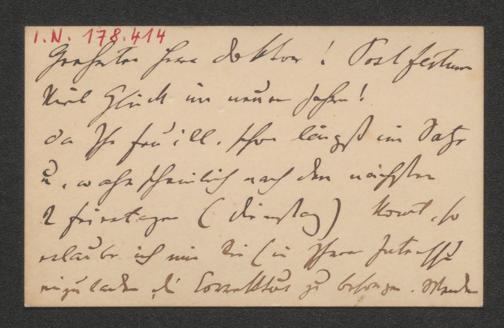 I.N. 178.414
Geehrter Herr Doktor! Post festum
viel Glück im neuen Jahre!
Da Ihr Feuill. schon längst im Satz
u. wahrscheinlich nach den nächsten
2 Feiertagen (Dienstag) kommt, so
erlaube ich mir Sie (in Ihrem Interesse)
einzuladen, die Correktur zu besorgen.